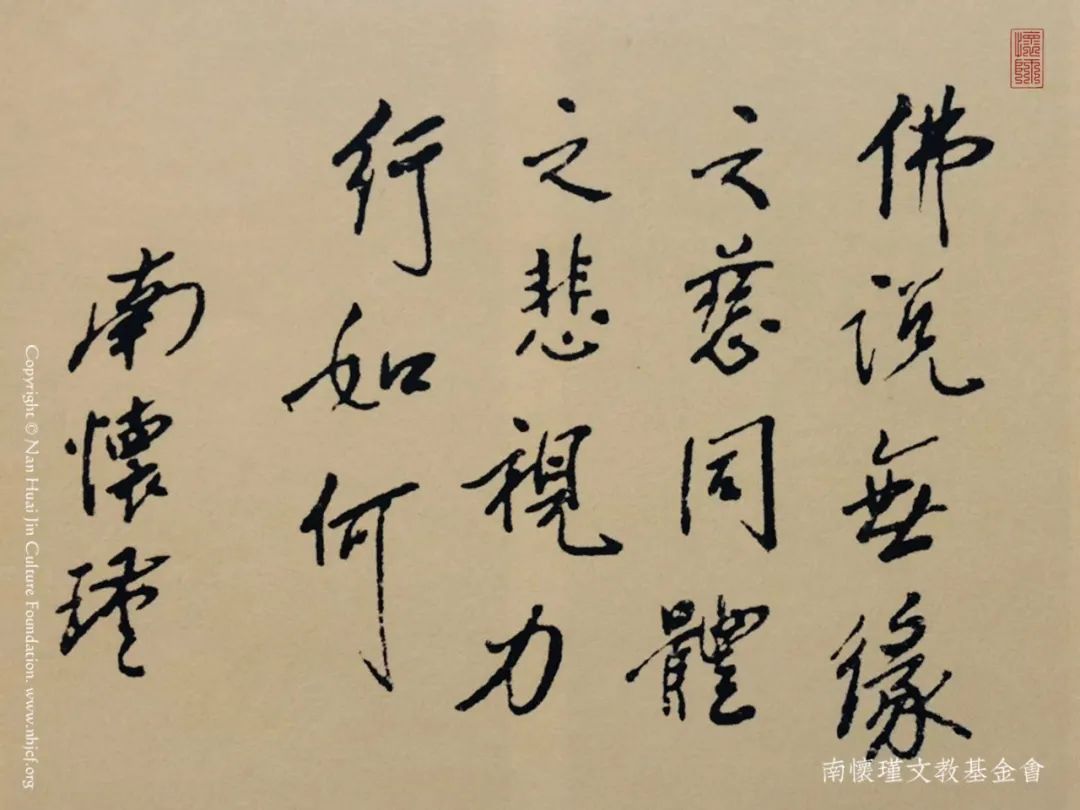 佛説無緣
之慈同體
之悲視力
行如何
南懷瑾
懷師
南懷瑾文教基金會
Copyright © Nan Huai Jin Culture Foundation. www.nhjcf.org